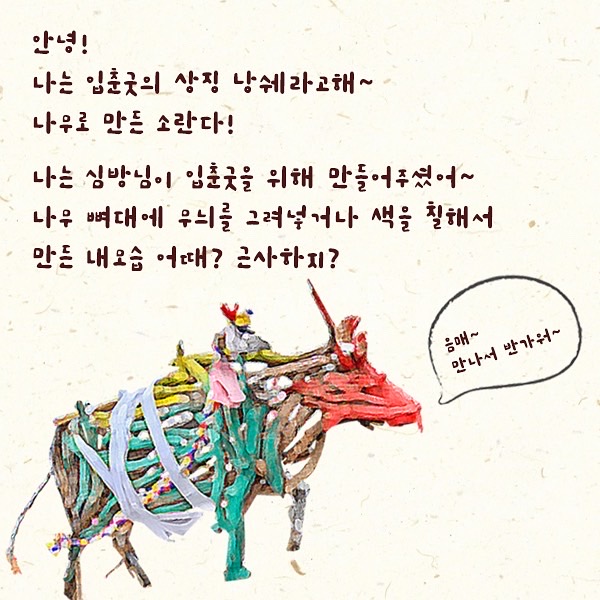 안녕!
나는 입춘굿의 상징 낭쉐라고해~
나무로 만든 소란다!
나는 심방님이 입춘굿을 위해 만들어주셨어~
나무 뼈대에 무늬를 그려넣거나 색을 칠해서
만든 내모습 어때? 근사하지?
음매~
만나서 반가워~